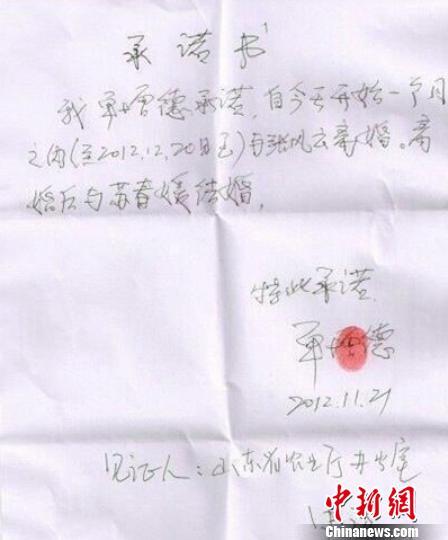 承诺书
我单增德承诺,自今天开始一个月
之内(至2012.12.20日止)与张风云离婚。离
婚后与苏春媛结婚,
特此承诺.
单增德
2012.11.21
见证人:山东省农业厅办公室
中新网
www.chinanews.com